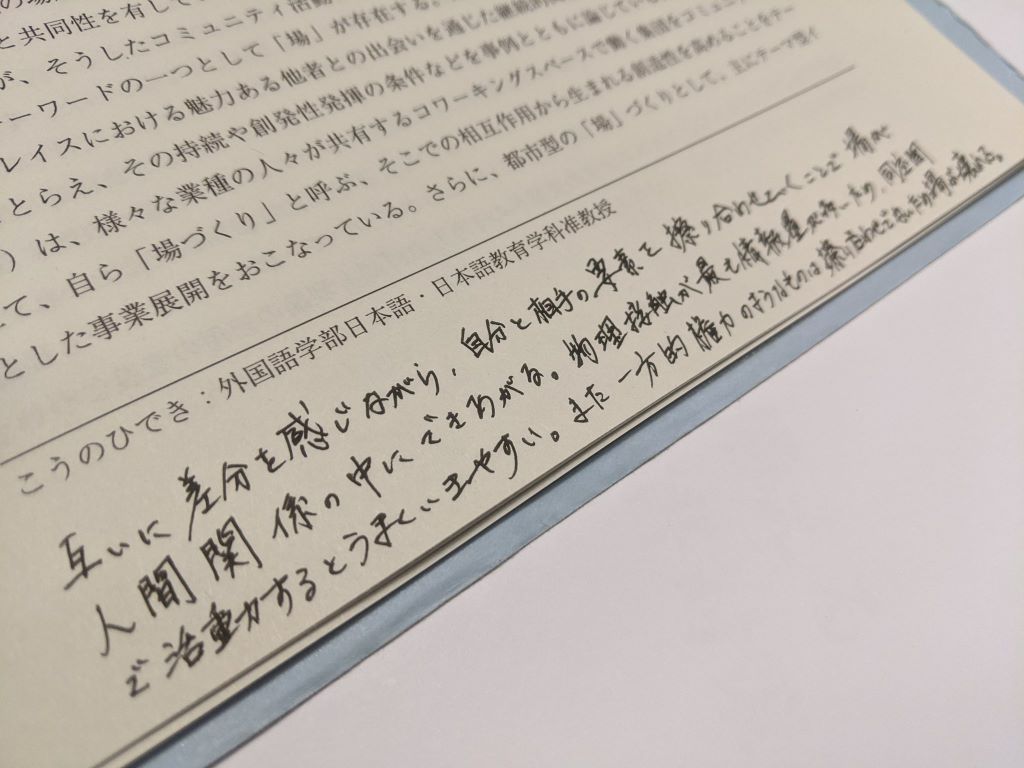 の場
と共同性を有して
が、そうしたコミュニティ活動
ーワードの一つとして「場」が存在する。
レイスにおける魅力ある他者との出会いを通じた継続的
とらえ、その持続や創発性発揮の条件などを事例とともに論じている
）は、様々な業種の人々が共有するコワーキングスペースで働く集団をコミュニ
て、自ら「場づくり」と呼ぶ、そこでの相互作用から生まれる創造性を高めることをテー
とした事業展開をおこなっている。さらに、都市型の「場」づくりとして、互にテーマ型イ
こうのひでき：外国語学部日本語・日本語教育学科准教授
互いに差分を感じながら、自分と相手の要素を擦り合わせていくことで場が
人間関係の中にできあがる。物理接触が最も情報量スタートの、同空間
で活動するとうまくいきやすい。また一方的権力のようなものは擦り合わせではないため場は壊れる。